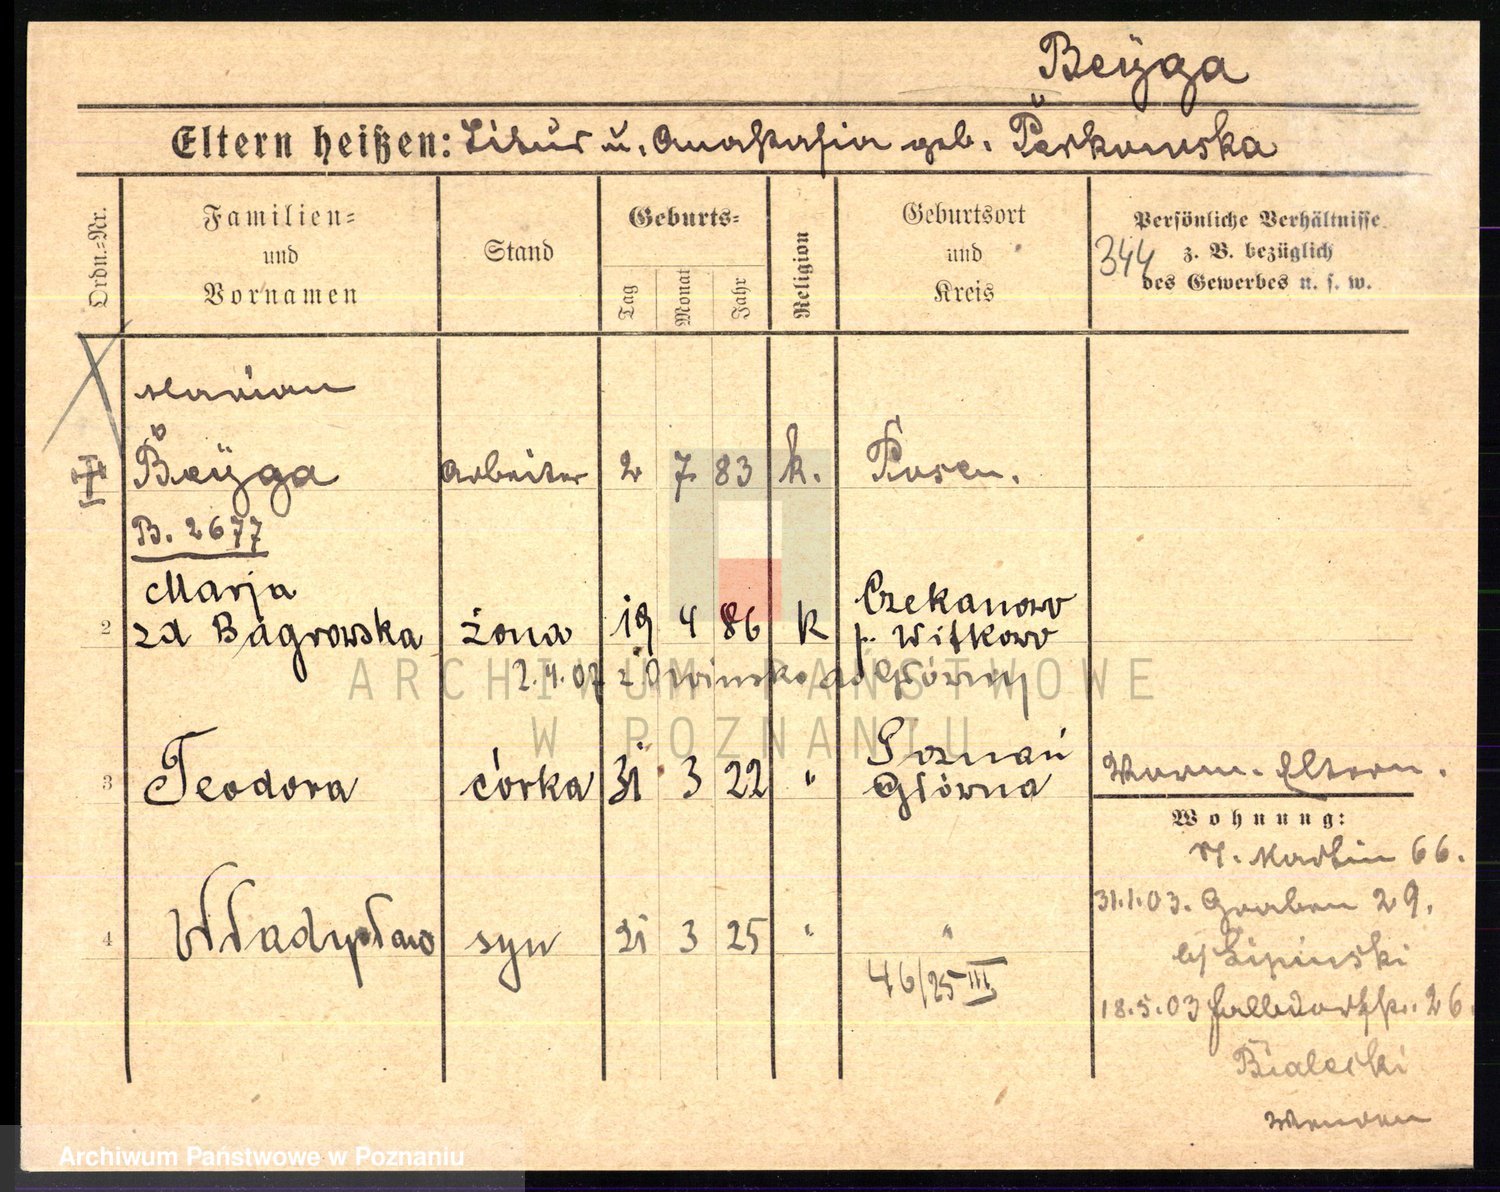 Beÿga
Eltern heißen: u. Anastasia geb. Perkowska
Ordn.=Nr.
Familien=
und
Vornamen
Stand
Geburts=
Tag
Monat
Jahr
Religion
Geburtsort
und
Kreis
Persönliche Verhältnisse
z. B. bezüglich
des Gewerbes u. s. w.
344
Marian
Beÿga Arbeiter 2 7 83 k. Posen.
B. 2677
Marja Czekanowo
2 zd Bagrowska żona 19 4 86 k p. Witkowo
2.4.07 z Owinsk do Główny
Poznań
3 Teodora córka 31 3 22 " Główna
Vorm. Eltern.
Wohnung:
St. Martin 66.
31.1.03. Graben 29.
b/ Lipinski
18.5.03 26.
Bialecki
4 Władysław syn 21 3 25 " "
46/25 III
ARCHIWUM PAŃSTWOWE
W POZNANIU
Archiwum Państwowe w Poznaniu